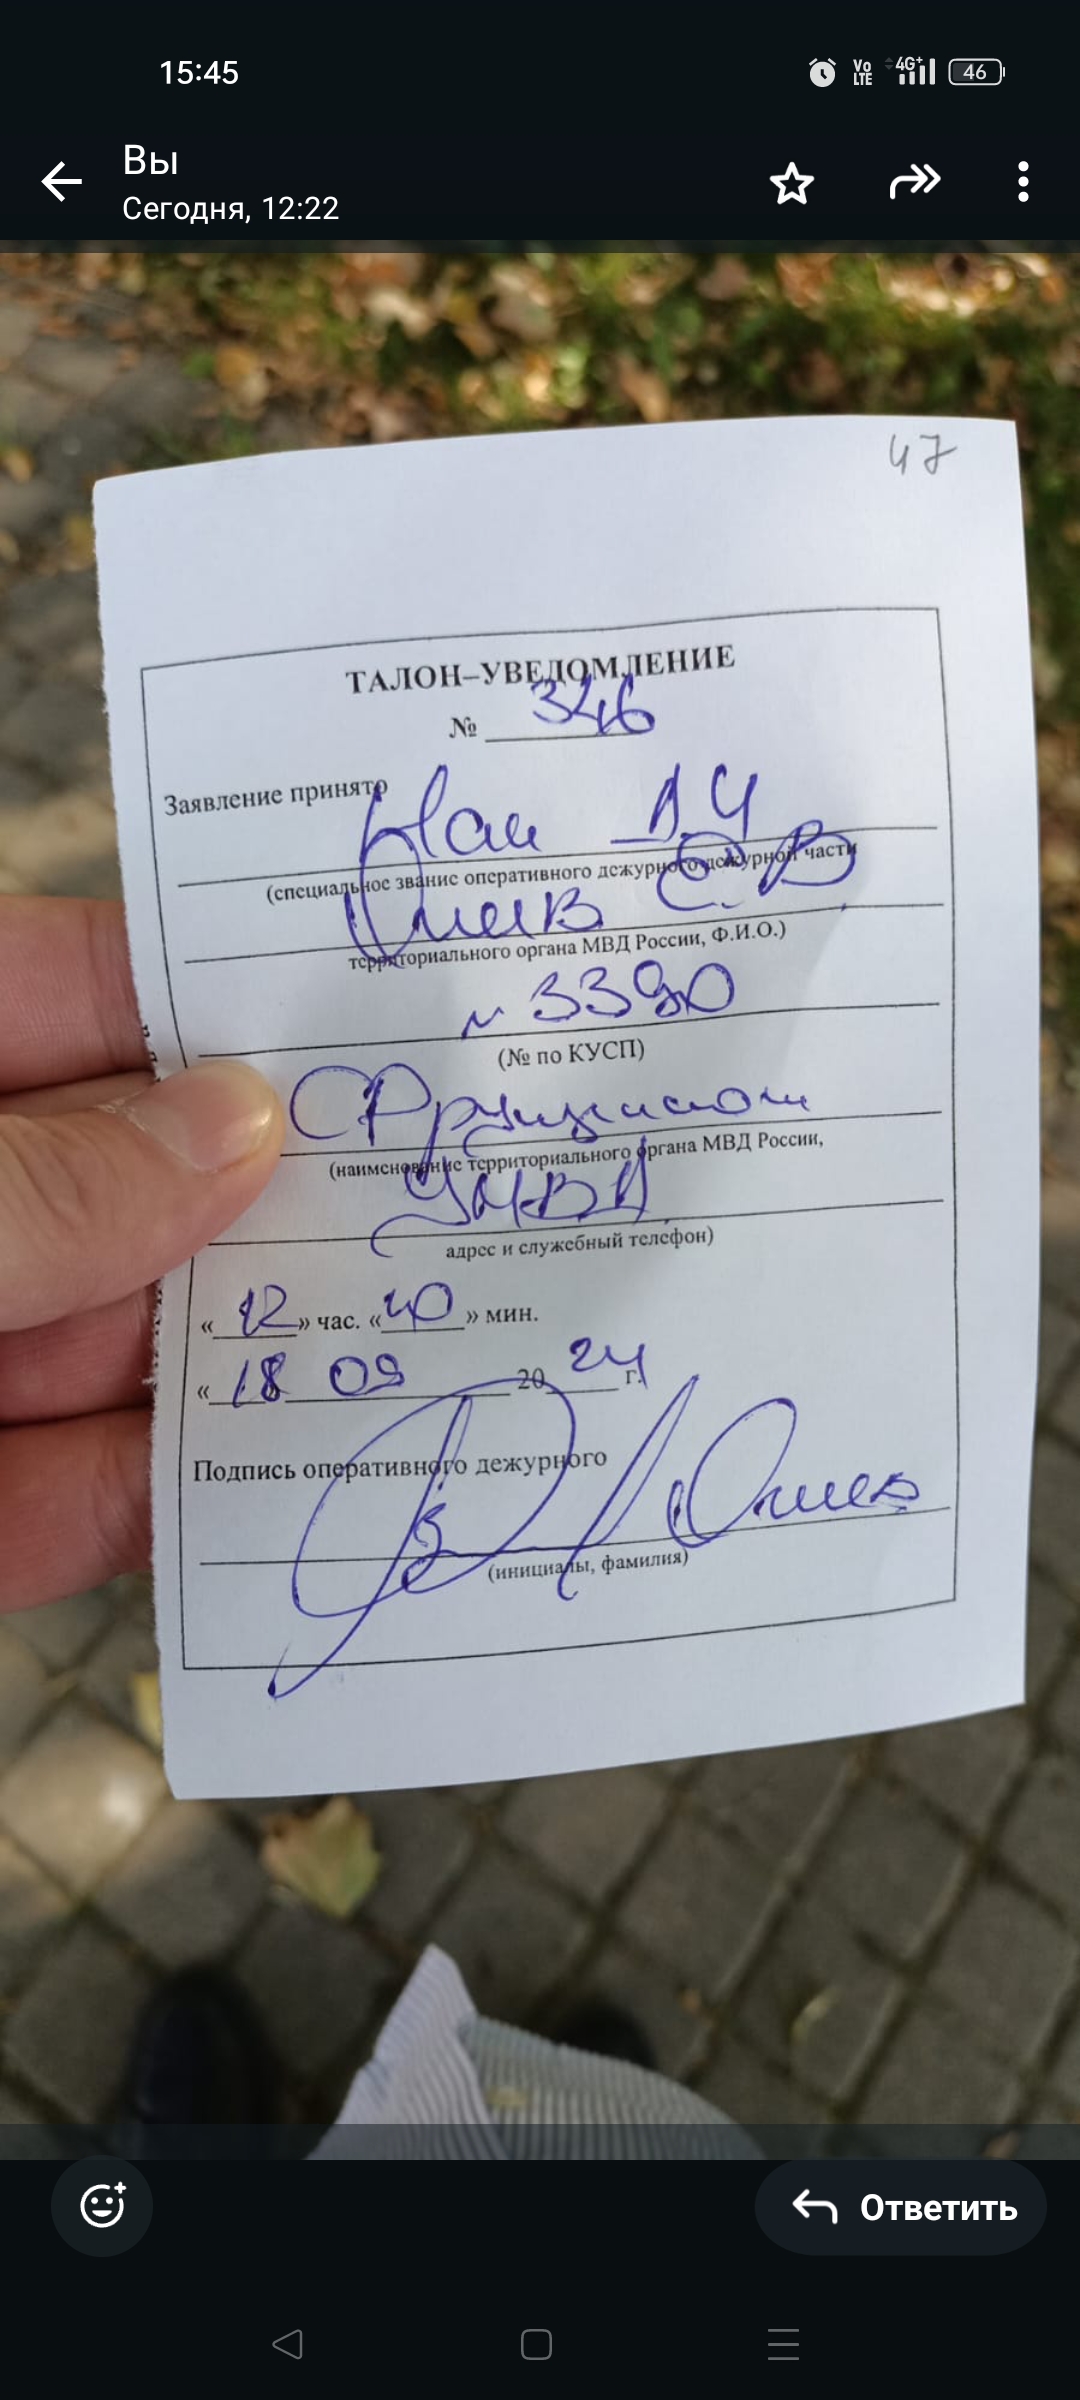 15:45
Vo LTE 4G+ 46
Вы
Сегодня, 12:22
47
ТАЛОН–УВЕДОМЛЕНИЕ
№ 346
Заявление принято
Нач ДЧ
(специальное звание оперативного дежурного дежурной части
В
территориального органа МВД России, Ф.И.О.)
№ 3390
(№ по КУСП)
(наименование территориального органа МВД России,
УМВД
адрес и служебный телефон)
«12» час. «40» мин.
«18 09 2024 г.
Подпись оперативного дежурного
(инициалы, фамилия)
Ответить